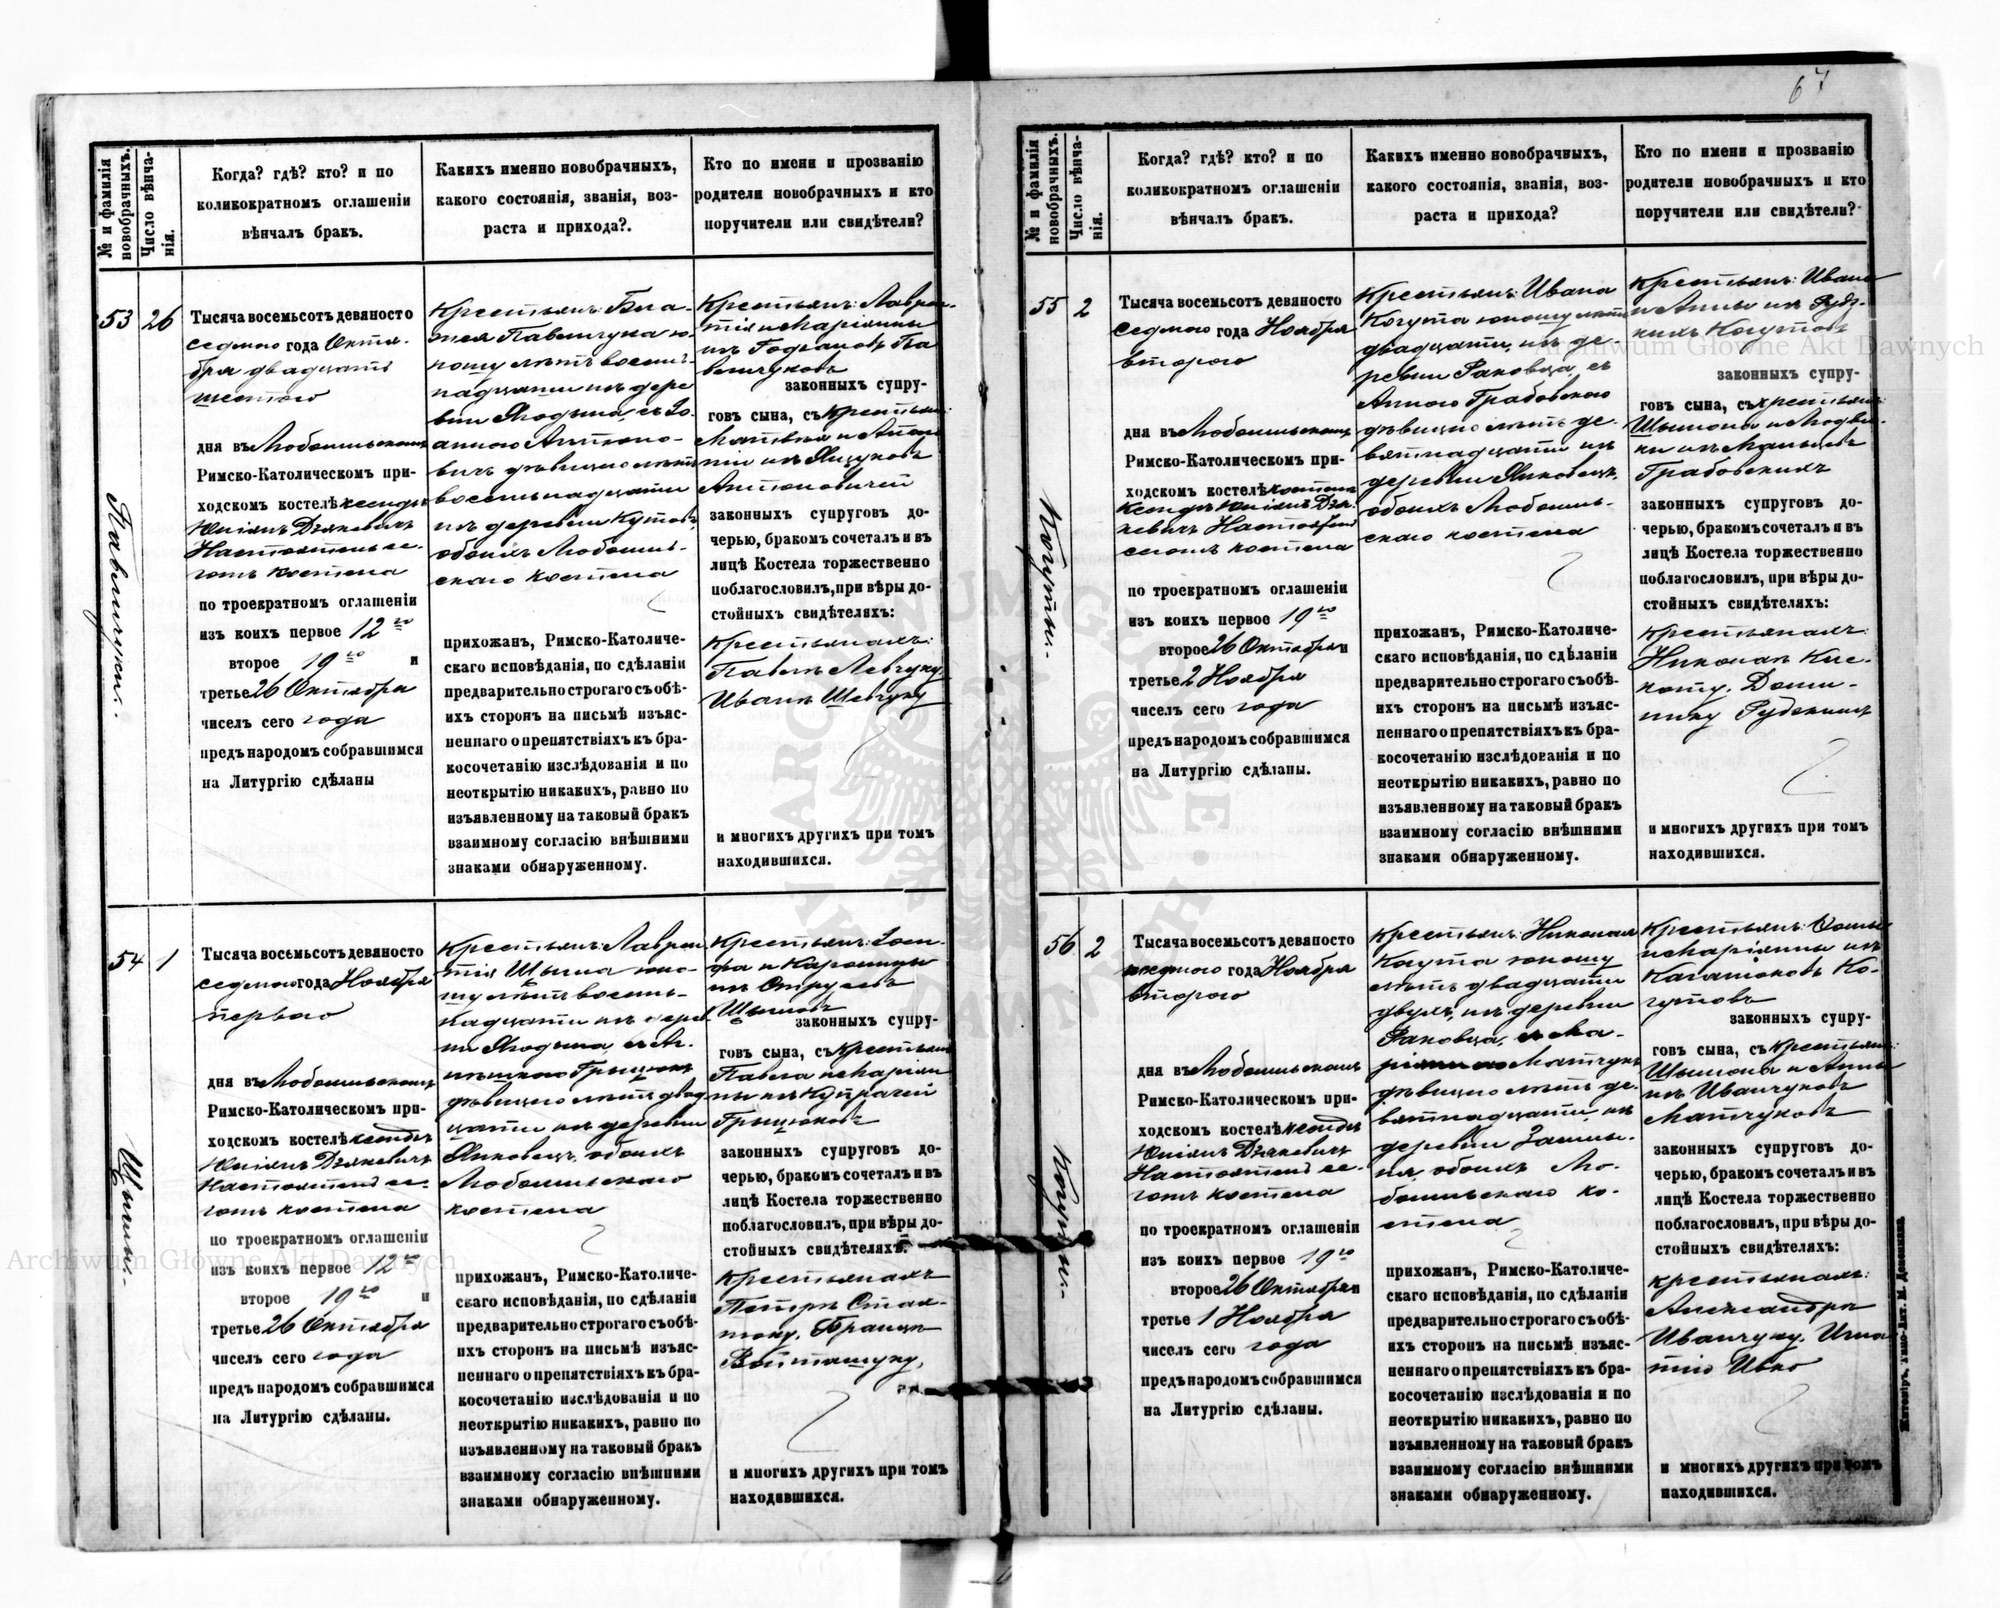 67
№ и фамилія новобрачныхъ.
Число вѣнча-
нія.
Когда? гдѣ? кто? и по
коликократномъ оглашеніи
вѣнчалъ бракъ.
Какихъ именно новобрачныхъ,
какого состоянія, званія, воз-
раста и прихода?.
Кто по имени и прозванію
родители новобрачныхъ и кто
поручители или свидѣтели?
53
26
Павличуки.
Тысяча восемьсотъ девяносто
седмого года Октя-
бря двадцать
шестого
дня въ Любомльскомъ
Римско-Католическомъ при-
ходскомъ костелѣ ксендзъ
Юліянъ Дзякевичъ
Настоятель се-
гожъ костела
по троекратномъ оглашеніи
изъ коихъ первое 12го
второе 19го и
третье 26 Октября
чиселъ сего года
предъ народомъ собравшимся
на Литургію сдѣланы
Крестьян: Бла-
жея Павличука ю-
ношу лѣтъ восем-
надцати изъ дере
вни Ягодына, съ Іо-
анною Антоно-
вичъ дѣвицею лѣтъ
восемьнадцати
изъ деревни Кутовъ,
обоихъ Любомль-
скаго костела
прихожан, Римско-Католиче-
скаго исповѣданія, по сдѣланіи
предварительно строгаго съ обѣ-
ихъ сторонъ на письмѣ изъяс-
неннаго о препятствіяхъ къ бра-
косочетанію изслѣдованія и по
неоткрытію никакихъ, равно по
изъявленному на таковый бракъ
взаимному согласію внѣшними
знаками обнаруженному.
Крестьян: Лаврен-
тія и Маріянны
изъ Годымовъ Па
вличуковъ
законныхъ супру-
говъ сына, съ крестьян:
Матвѣя и Анто
ніи изъ Яцуковъ
Антоновичей
законныхъ супруговъ до-
черью, бракомъ сочеталъ и въ
лицѣ Костела торжественно
поблагословилъ, при вѣры до-
стойныхъ свидѣтеляхъ:
Крестьянахъ:
Павлѣ Левчуку,
Иванѣ Шевчуку
и многихъ другихъ при томъ
находившихся.
54
1
Щыпы.
Тысяча восемьсотъ девяносто
седмого года Ноября
перваго
дня въ Любомльскомъ
Римско-Католическомъ при-
ходскомъ костелѣ ксендзъ
Юліянъ Дзякевичъ
Настоятель се-
гожъ костела
по троекратномъ оглашеніи
изъ коихъ первое 12го
второе 19го и
третье 26 Октября
чиселъ сего года
предъ народомъ собравшимся
на Литургію сдѣланы.
Крестьян: Лаврен
тія Щыпа юно-
шу лѣтъ восемь-
надцати изъ дерев
ни Ягодына, съ Аг-
нѣшкою Грыцюкъ
дѣвицею лѣтъ двад
цати изъ деревни
Янковецъ, обоихъ
Любомльскаго
костела
прихожан, Римско-Католиче-
скаго исповѣданія, по сдѣланіи
предварительно строгаго съ обѣ-
ихъ сторонъ на письмѣ изъяс-
неннаго о препятствіяхъ къ бра-
косочетанію изслѣдованія и по
неоткрытію никакихъ, равно по
изъявленному на таковый бракъ
взаимному согласію внѣшними
знаками обнаруженному.
Крестьян: Іоси-
фа и Каролины
изъ
Щыповъ
законныхъ супру-
говъ сына, съ крестьян
Павла и Маріян
ны изъ Купрачей
Грыцюковъ
законныхъ супруговъ до-
черью, бракомъ сочеталъ и въ
лицѣ Костела торжественно
поблагословилъ, при вѣры до-
стойныхъ свидѣтеляхъ:
Крестьянахъ
Петрѣ
Францѣ
Войтащуку,
и многихъ другихъ при томъ
находившихся.
№ и фамилія новобрачныхъ.
Число вѣнча-
нія.
Когда? гдѣ? кто? и по
коликократномъ оглашеніи
вѣнчалъ бракъ.
Какихъ именно новобрачныхъ,
какого состоянія, званія, воз-
раста и прихода?
Кто по имени и прозванію
родители новобрачныхъ и кто
поручители или свидѣтели?
55
2
Когуты.
Тысяча восемьсотъ девяносто
седмого года Ноября
второго
дня въ Любомльскомъ
Римско-Католическомъ при-
ходскомъ костелѣ
Ксендзъ Юліянъ Дзя-
кевичъ Настоятель
сегожъ костела
по троекратномъ оглашеніи
изъ коихъ первое 19го
второе 26 Октября и
третье 2 Ноября
чиселъ сего года
предъ народомъ собравшимся
на Литургію сдѣланы.
Крестьян: Ивана
Когута юношу лѣтъ
двадцати, изъ де-
ревни Раковца, съ
Анною Грабовскою
дѣвицею лѣтъ де-
вятнадцати изъ
деревни Янковецъ,
обоихъ Любомль-
скаго костела
прихожан, Римско-Католиче-
скаго исповѣданія, по сдѣланіи
предварительно строгаго съ обѣ-
ихъ сторонъ на письмѣ изъяс-
неннаго о препятствіяхъ къ бра-
косочетанію изслѣдованія и по
неоткрытію никакихъ, равно по
изъявленному на таковый бракъ
взаимному согласію внѣшними
знаками обнаруженному.
Крестьян: Ивана
и Анны изъ Рудз-
кихъ Когутовъ
законныхъ супру-
говъ сына, съ крестьян:
Шымона и Людви-
ки изъ
Грабовскихъ
законныхъ супруговъ до-
черью, бракомъ сочеталъ и въ
лицѣ Костела торжественно
поблагословилъ, при вѣры до-
стойныхъ свидѣтеляхъ:
Крестьянахъ:
Николаѣ
Доми-
нику
и многихъ другихъ при томъ
находившихся.
56
2
Когуты.
Тысяча восемьсотъ девяносто
седмого года Ноября
второго
дня въ Любомльскомъ
Римско-Католическомъ при-
ходскомъ костелѣ ксендзъ
Юліянъ Дзякевичъ
Настоятель се-
гожъ костела
по троекратномъ оглашеніи
изъ коихъ первое 19го
второе 26 Октября и
третье 1 Ноября
чиселъ сего года
предъ народомъ собравшимся
на Литургію сдѣланы.
Крестьян: Николая
Когута юношу
лѣтъ двадцати
двухъ, изъ деревни
Раковца, съ Ма-
ріянною Матчукъ
дѣвицею лѣтъ де-
вятнадцати, изъ
деревни
обоихъ Лю-
бомльскаго ко-
стела
прихожан, Римско-Католиче-
скаго исповѣданія, по сдѣланіи
предварительно строгаго съ обѣ-
ихъ сторонъ на письмѣ изъяс-
неннаго о препятствіяхъ къ бра-
косочетанію изслѣдованія и по
неоткрытію никакихъ, равно по
изъявленному на таковый бракъ
взаимному согласію внѣшними
знаками обнаруженному.
Крестьян: Ѳомы
и Маріянны изъ
Ко-
гутовъ
законныхъ супру-
говъ сына, съ крестьян:
Шымона и Анны
изъ Иванчуковъ
Матчуковъ
законныхъ супруговъ до-
черью, бракомъ сочеталъ и въ
лицѣ Костела торжественно
поблагословилъ, при вѣры до-
стойныхъ свидѣтеляхъ:
крестьянахъ:
Александрѣ
Иванчуку, Игна
тію Ивко
и многихъ другихъ при томъ
находившихся.
Житоміръ, Типо-Лит. М. Дененмана
Archiwum Główne Akt Dawnych
Archiwum Główne Akt Dawnych
ARCHIWUM GŁÓWNE AKT DAWNYCH